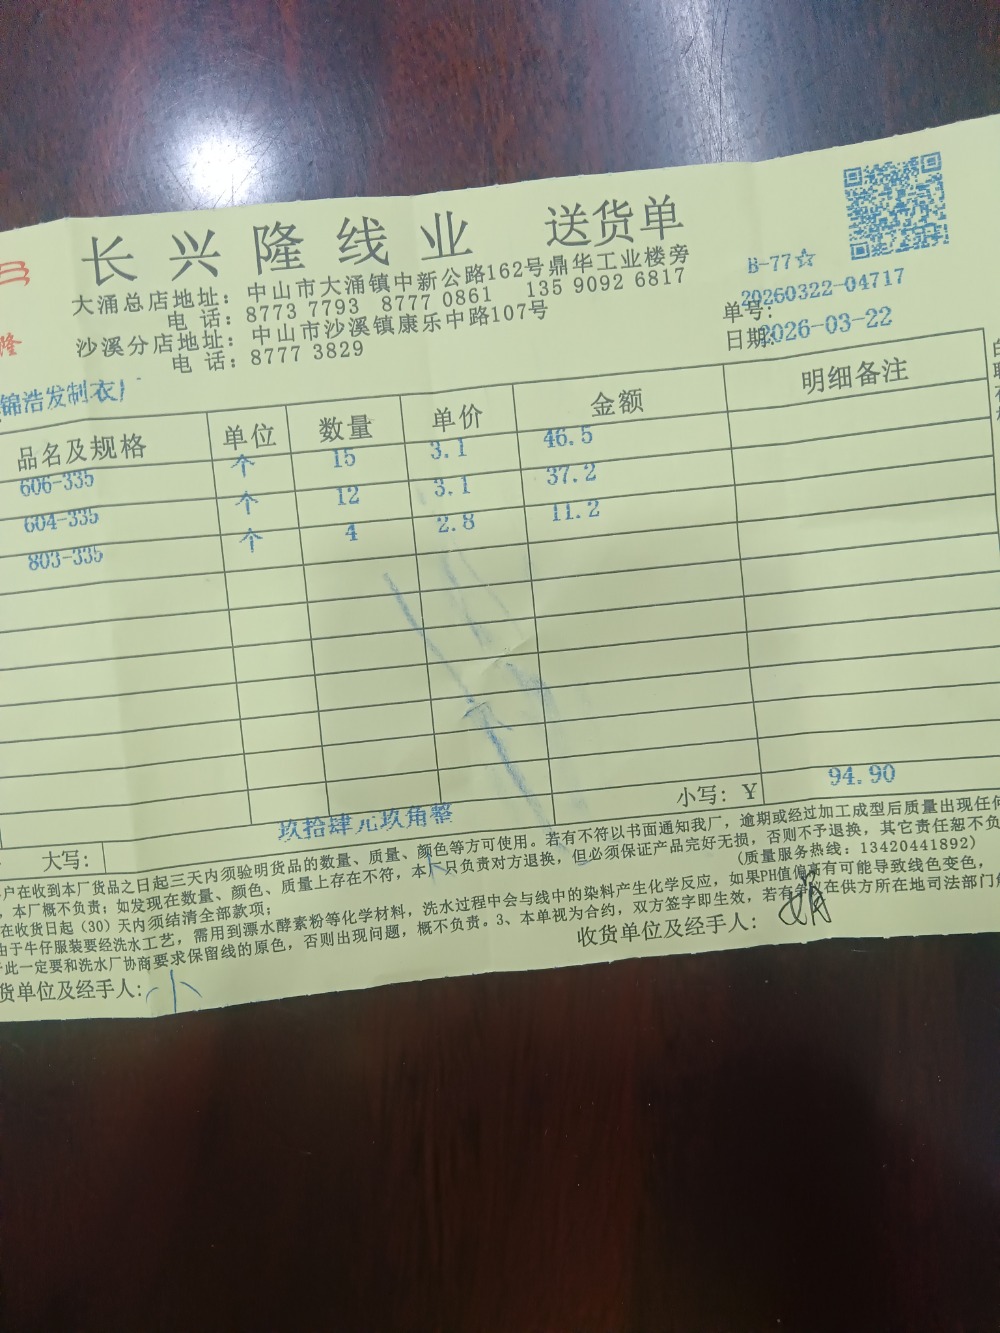 长兴隆线业 送货单
大涌总店地址：中山市大涌镇中新公路162号鼎华工业楼旁
电话：8773 7793 8777 0861 135 9092 6817
沙溪分店地址：中山市沙溪镇康乐中路107号
电话：8777 3829
B-77☆
单号：20260322-04717
日期：2026-03-22
隆
锦浩发制衣厂
品名及规格 单位 数量 单价 金额 明细备注
606-335 个 15 3.1 46.5
604-335 个 12 3.1 37.2
803-335 个 4 2.8 11.2
小写：￥ 94.90
大写： 玖拾肆元玖角整
户在收到本厂货品之日起三天内须验明货品的数量、质量、颜色等方可使用。若有不符以书面通知我厂，逾期或经过加工成型后质量出现任何
，本厂概不负责；如发现在数量、颜色、质量上存在不符，本厂只负责对方退换，但必须保证产品完好无损，否则不予退换，其它责任恕不负
在收货日起（30）天内须结清全部款项； （质量服务热线：13420441892）
由于牛仔服装要经洗水工艺，需用到漂水酵素粉等化学材料，洗水过程中会与线中的染料产生化学反应，如果PH值偏高有可能导致线色变色，
此一定要和洗水厂协商要求保留线的原色，否则出现问题，概不负责。3、本单视为合约，双方签字即生效，若有争议在供方所在地司法部门
货单位及经手人： 收货单位及经手人：